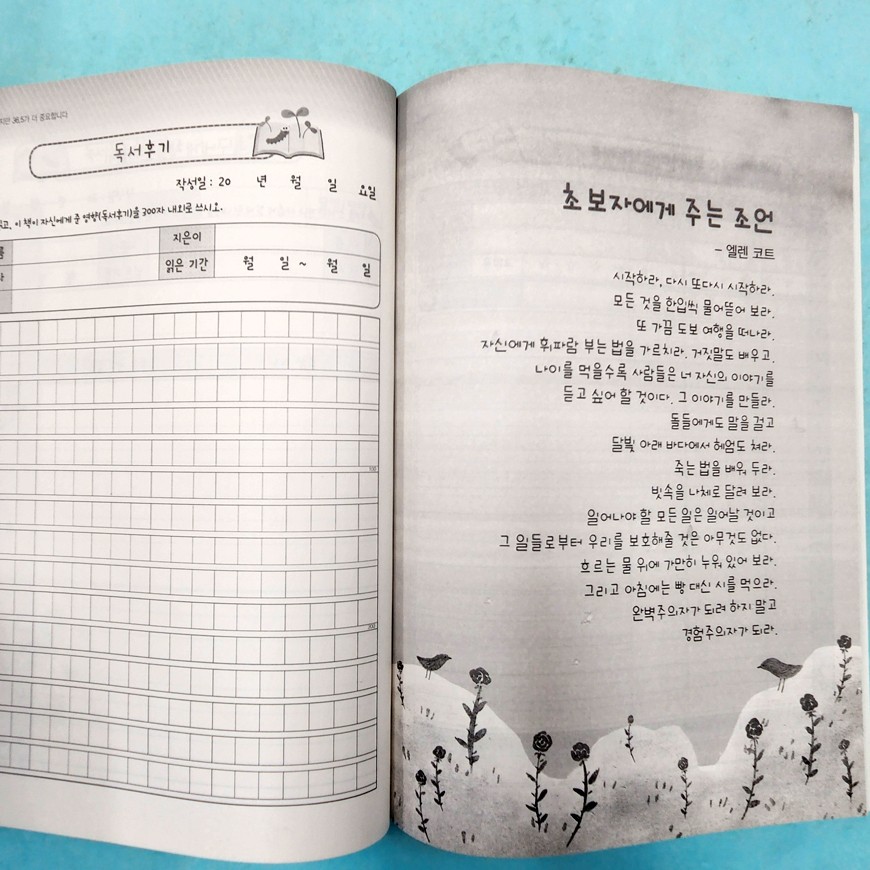 36.5가 더 중요합니다
독서후기
작성일 : 20 년 월 일 요일
이 책이 자신에게 준 영향(독서후기)을 300자 내외로 쓰시오.
지은이
읽은 기간 월 일 ~ 월 일
100
200
초보자에게 주는 조언
- 엘렌 코트
시작하라, 다시 또다시 시작하라.
모든 것을 한입씩 물어뜯어 보라.
또 가끔 도보 여행을 떠나라.
자신에게 휘파람 부는 법을 가르치라. 거짓말도 배우고.
나이를 먹을수록 사람들은 너 자신의 이야기를
듣고 싶어 할 것이다. 그 이야기를 만들라.
돌들에게도 말을 걸고
달빛 아래 바다에서 헤엄도 쳐라.
죽는 법을 배워 두라.
빗속을 나체로 달려 보라.
일어나야 할 모든 일은 일어날 것이고
그 일들로부터 우리를 보호해줄 것은 아무것도 없다.
흐르는 물 위에 가만히 누워 있어 보라.
그리고 아침에는 빵 대신 시를 먹으라.
완벽주의자가 되려 하지 말고
경험주의자가 되라.